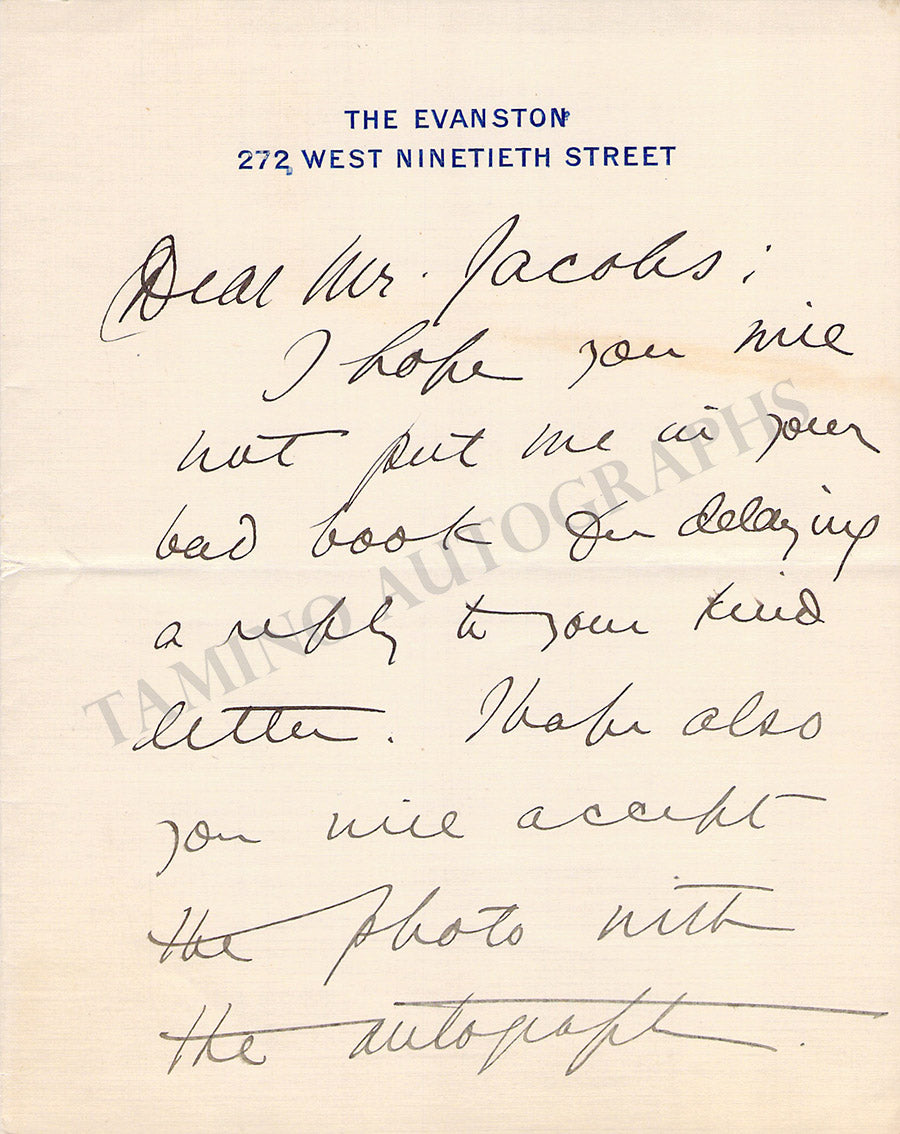 THE EVANSTON
272 WEST NINETIETH STREET
Dear Mr. Jacobs;
I hope you will
not put me in your
bad book for delaying
a reply to your kind
letter. I hope also
you will accept
the photo with
the autograph.
TAMINO AUTOGRAPHS